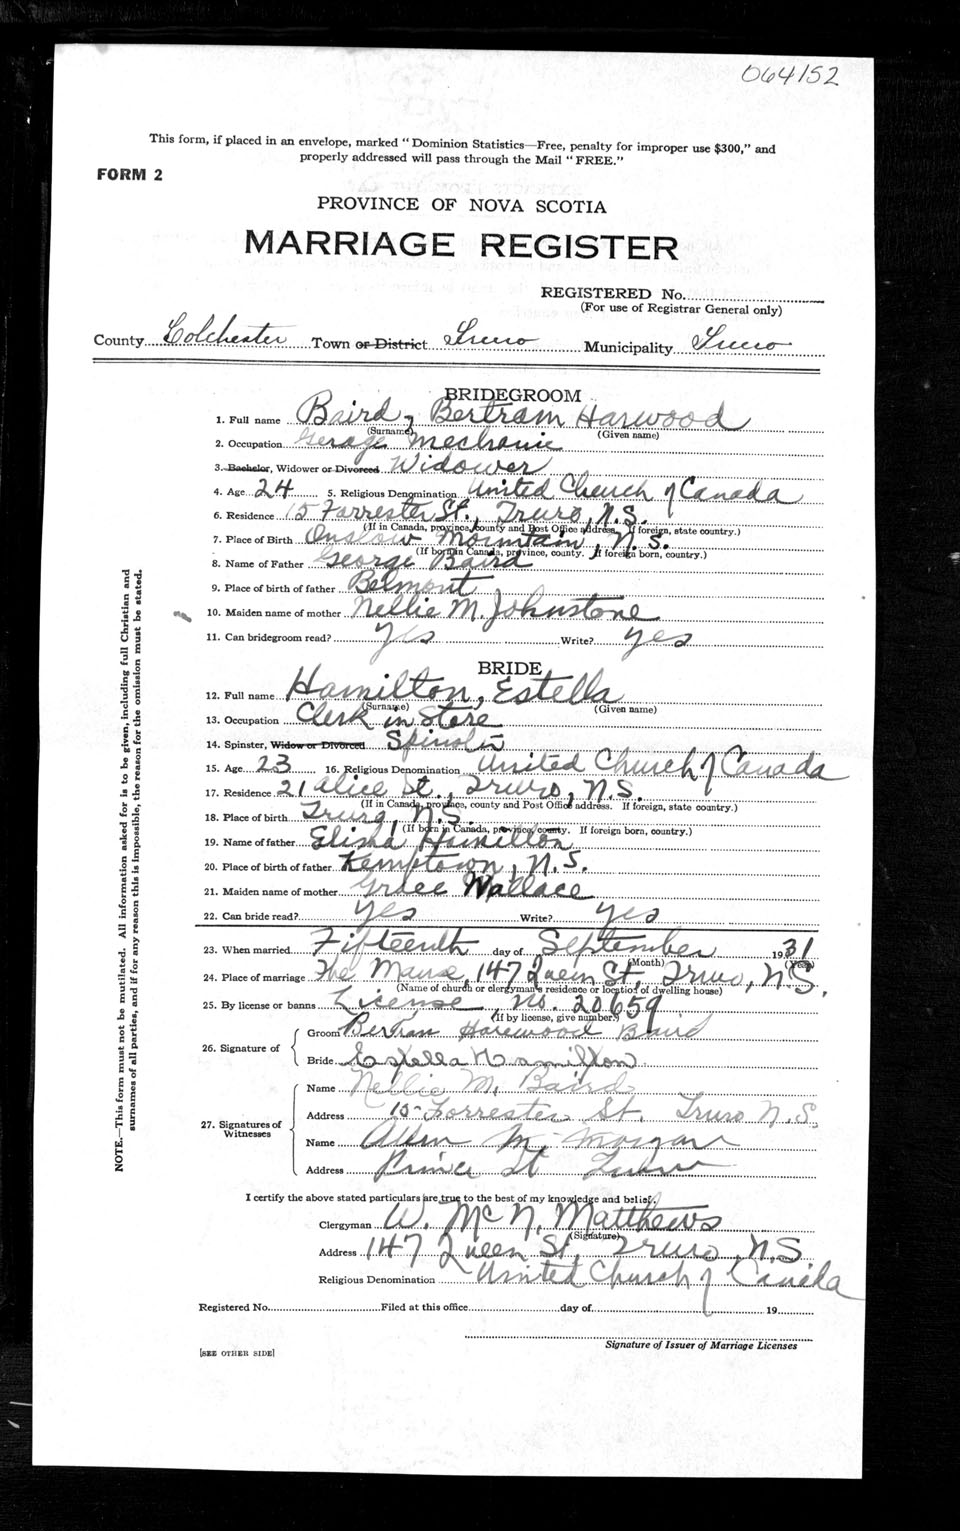 064152
This form, if placed in an envelope, marked "Dominion Statistics—Free, penalty for improper use $300," and
properly addressed will pass through the Mail "FREE."
FORM 2
PROVINCE OF NOVA SCOTIA
MARRIAGE REGISTER
REGISTERED No.
(For use of Registrar General only)
County Colchester Town or District Truro Municipality Truro
BRIDEGROOM
1. Full name Baird, Bertram Harwood
(Surname) (Given name)
2. Occupation Gerage Mechanic
3. Bachelor, Widower or Divorced Widower
4. Age 24 5. Religious Denomination United Church of Canada
6. Residence 15 Forrester St., Truro, N.S.
(If in Canada, province, county and Post Office address. If foreign, state country.)
7. Place of Birth Onslow Mountain, N.S.
(If born in Canada, province, county. If foreign born, country.)
8. Name of Father George Baird
9. Place of birth of father Belmont
10. Maiden name of mother Nellie M. Johnstone
11. Can bridegroom read? Yes Write? yes
BRIDE
12. Full name Hamilton, Estella
(Surname) (Given name)
13. Occupation Clerk in Store
14. Spinster, Widow or Divorced Spinster
15. Age 23 16. Religious Denomination United Church of Canada
17. Residence 21 Alice St., Truro, N.S.
(If in Canada, province, county and Post Office address. If foreign, state country.)
18. Place of birth Truro, N.S.
(If born in Canada, province, county. If foreign born, country.)
19. Name of father Elisha Hamilton
20. Place of birth of father Kemptown, N.S.
21. Maiden name of mother Grace Wallace
22. Can bride read? yes Write? yes
23. When married Fifteenth day of September 1931
(Month) (Year)
24. Place of marriage The Manse, 147 Queen St., Truro, N.S.
(Name of church or clergyman's residence or location of dwelling house)
25. By license or banns License, No. 20659
(If by license, give number.)
26. Signature of
Groom Bertram Harewood Baird
Bride Estella Hamilton
27. Signatures of Witnesses
Name Nellie M. Baird
Address 15 Forrester St. Truro N.S.
Name Allen M. Morgan
Address Prince St Truro
I certify the above stated particulars are true to the best of my knowledge and belief.
Clergyman W. McN. Matthews
(Signature)
Address 147 Queen St., Truro, N.S.
Religious Denomination United Church of Canada
Registered No. Filed at this office day of 19
Signature of Issuer of Marriage Licenses
[SEE OTHER SIDE]
NOTE.—This form must not be mutilated. All information asked for is to be given, including full Christian and
surnames of all parties, and if for any reason this is impossible, the reason for the omission must be stated.